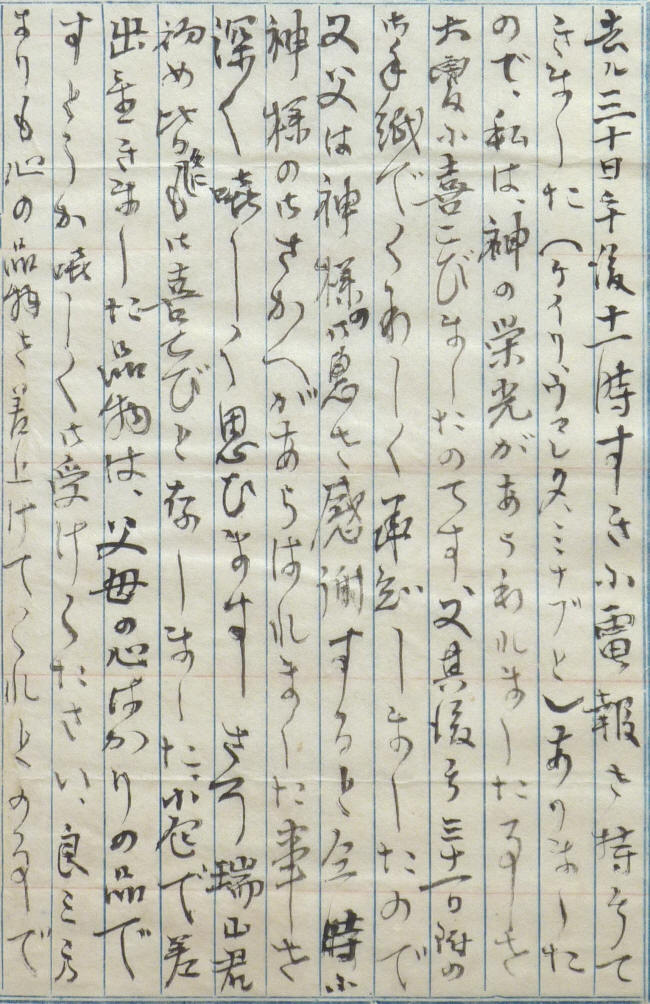 去ル三十日午後十一時すきに電報を持って
きました（ケイリ、ウマレタ、ミナブと）ありました
ので、私は、神の栄光があらわれました事を
大変に喜こびましたのです 又其後 三十一日附の
御手紙でくわしく承知しましたので
又父は神様の御恵を感謝すると仝時に
神様の御さかへがあらはれました事を
深く嬉しく思ひます 瑞山君
初め皆々 も御喜こびと存しました、小包で差
出しましだ品物は、父母の心ばかりの品で
すどうか嬉しく御受けくたさい、
よりも心の品物を差上けてくれとの事で